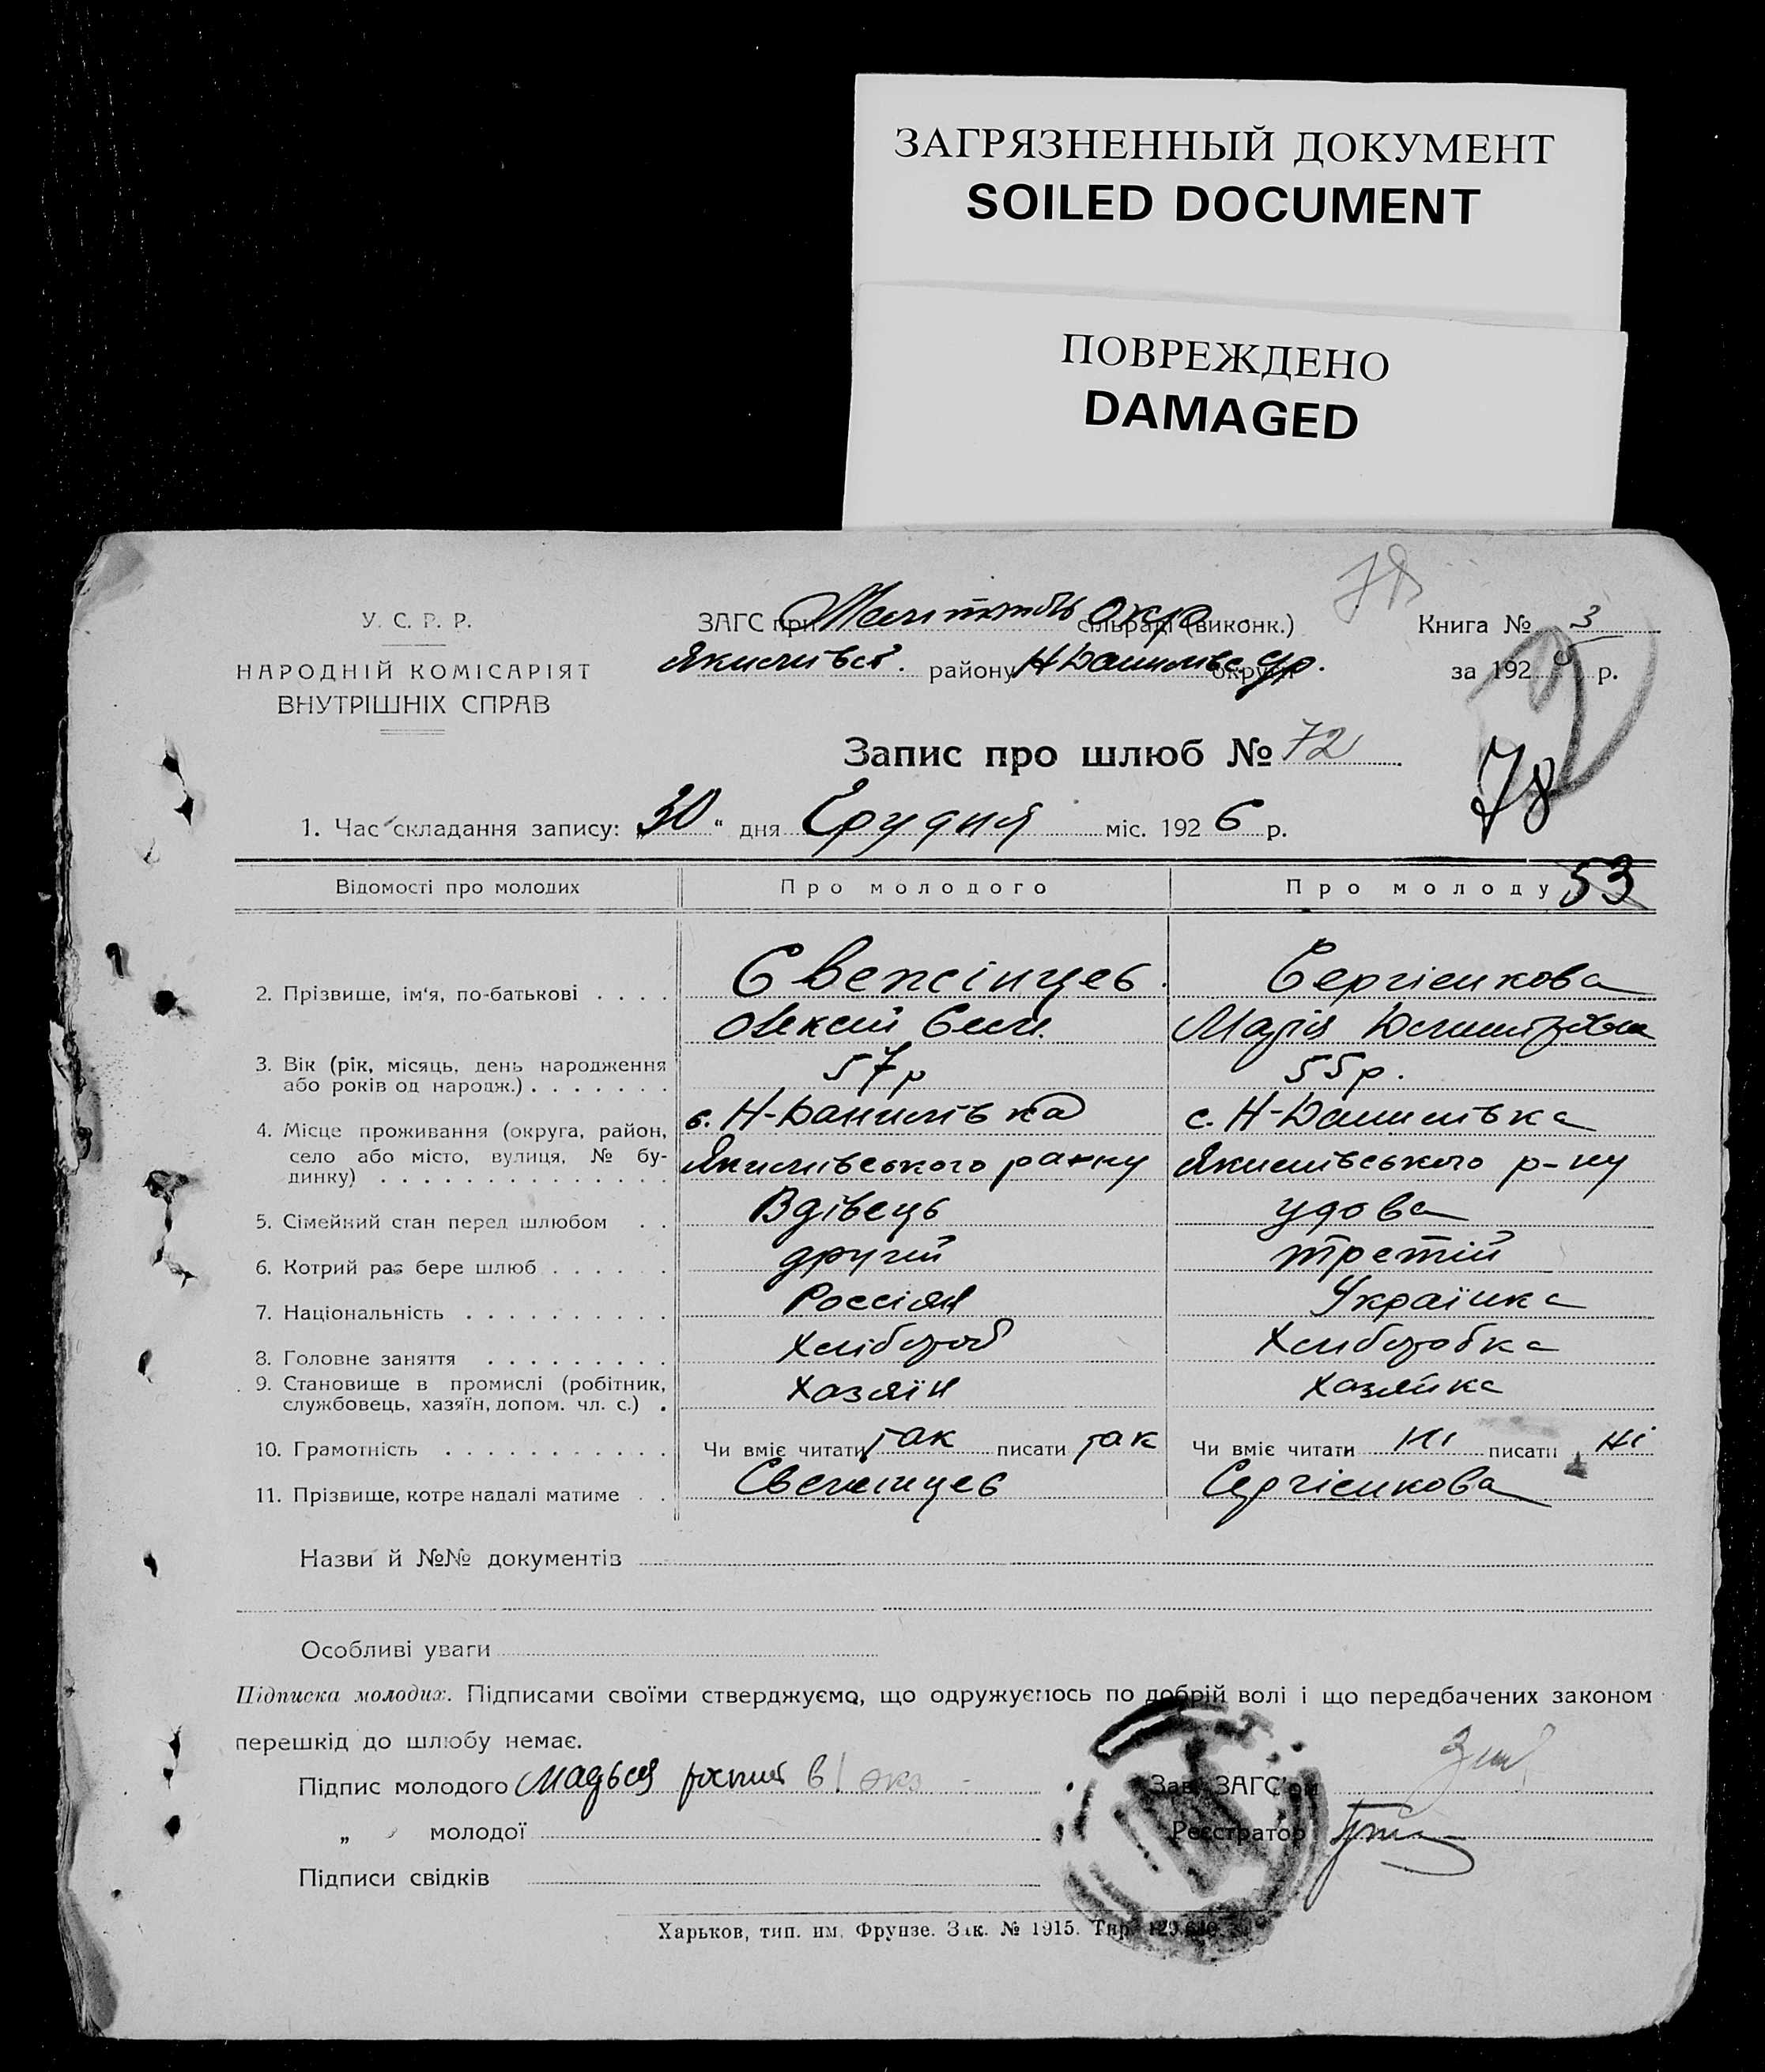 ЗАГРЯЗНЕННЫЙ ДОКУМЕНТ
SOILED DOCUMENT
ПОВРЕЖДЕНО
DAMAGED
78
У. С. Р. Р.
НАРОДНІЙ КОМІСАРІЯТ
ВНУТРІШНІХ СПРАВ
ЗАГС при Меліт окр сільраді (виконк.)
Якимівськ. району Н Данилівс округи
Книга № 3
за 1926 р.
Запис про шлюб № 72
78
1. Час складання запису: „30“ дня Грудня міс. 1926 р.
53
Відомості про молодих Про молодого Про молоду
2. Прізвище, ім'я, по-батькові . . . . Свенсінцев. Сергієнкова
Олексій Марія
3. Вік (рік, місяць, день народження або років од народж.) . . . . . . . 57р 55р.
4. Місце проживання (округа, район, село або місто, вулиця, № будинку) . . . с. Н-Данилівка с. Н-Данилівка
Якимівського району Якимівського р-ну
5. Сімейний стан перед шлюбом . . Вдівець удова
6. Котрий раз бере шлюб . . . . . . другий третій
7. Національність . . . . . . . . . . Россіян Українка
8. Головне заняття . . . . . . . . . Хлібороб Хліборобка
9. Становище в промислі (робітник, службовець, хазяїн, допом. чл. с.) . Хазяїн Хазяйка
10. Грамотність . . . . . . . . . . . Чи вміє читати так писати так Чи вміє читати ні писати ні
11. Прізвище, котре надалі матиме . . Сергієнкова
Назви й №№ документів
Особливі уваги
Підписка молодих. Підписами своїми стверджуємо, що одружуємось по добрій волі і що передбачених законом
перешкід до шлюбу немає.
Підпис молодого в 1 экз
Зав. ЗАГС'ом
„ молодої
Реєстратор
Підписи свідків
Харьков, тип. им. Фрунзе. Зак. № 1915. Тир.